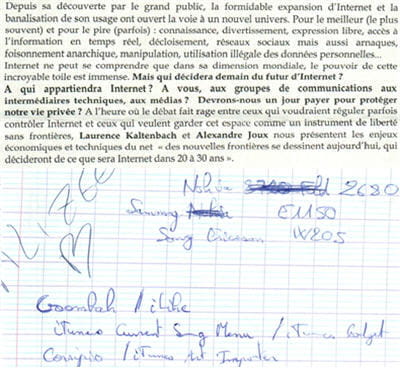 Depuis sa découverte par le grand public, la formidable expansion d'Internet et la
banalisation de son usage ont ouvert la voie à un nouvel univers. Pour le meilleur (le plus
souvent) et pour le pire (parfois) : connaissance, divertissement, expression libre, accès à
l'information en temps réel, décloisement, réseaux sociaux mais aussi arnaques,
foisonnement anarchique, manipulation, utilisation illégale des données personnelles...
Internet ne peut se comprendre que dans sa dimension mondiale, le pouvoir de cette
incroyable toile est immense. Mais qui décidera demain du futur d'Internet ?
A qui appartiendra Internet ? A vous, aux groupes de communications aux
intermédiaires techniques, aux médias ? Devrons-nous un jour payer pour protéger
notre vie privée ? A l'heure où le débat fait rage entre ceux qui voudraient réguler parfois
contrôler Internet et ceux qui veulent garder cet espace comme un instrument de liberté
sans frontières, Laurence Kaltenbach et Alexandre Joux nous présentent les enjeux
économiques et techniques du net « des nouvelles frontières se dessinent aujourd'hui, qui
décideront de ce que sera Internet dans 20 à 30 ans ».
Nokia 2680
Samsung E1150
Sony Ericsson W205
Goombah / iLike
iTunes Current Song Menu / iTunes Gadget
Corripio / iTunes Art Importer